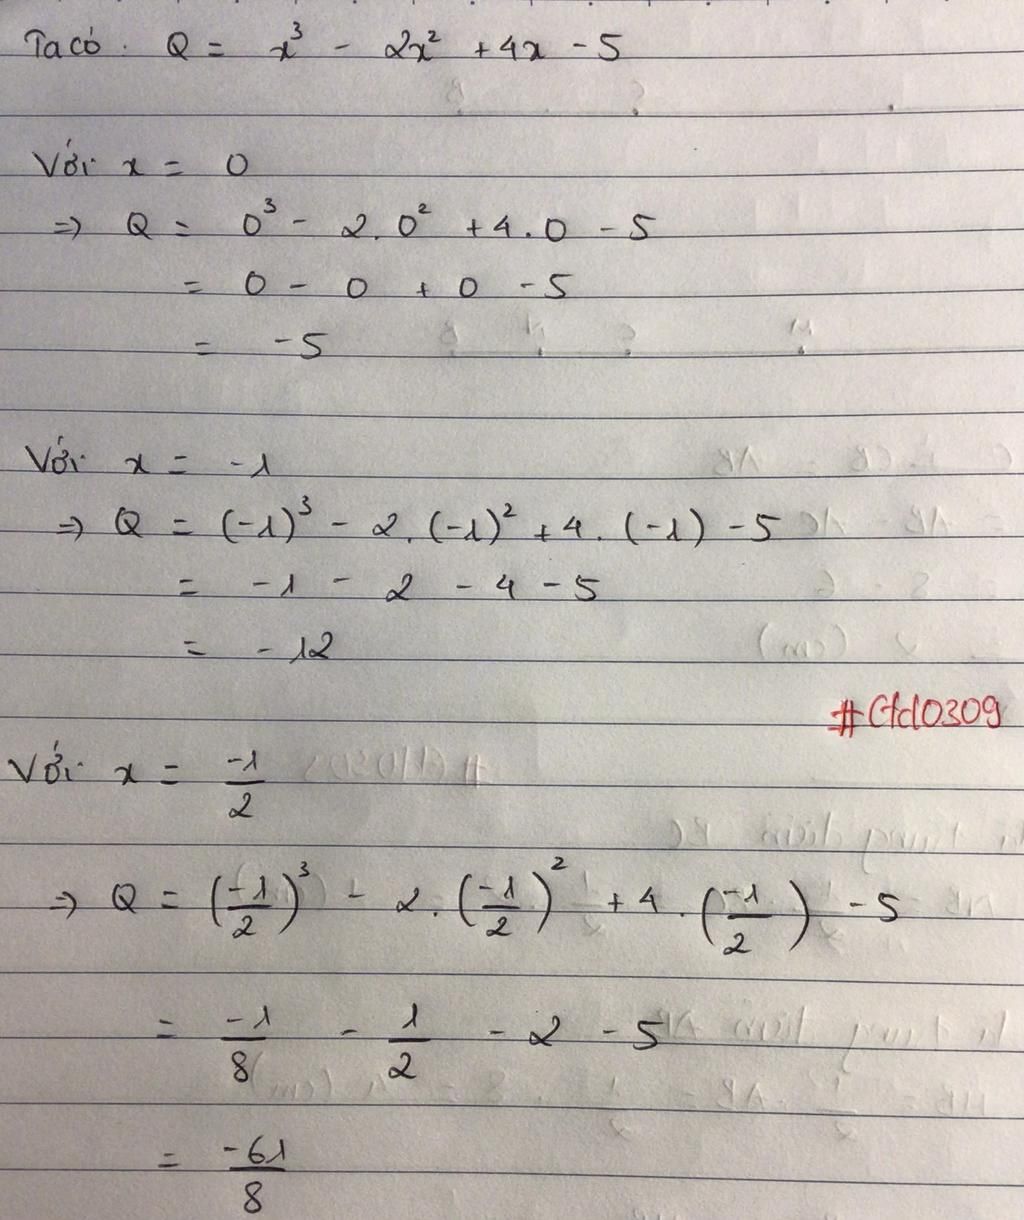 Ta có: Q = x³ - 2x² + 4x - 5
Với x = 0
=> Q = 0³ - 2.0² + 4.0 - 5
= 0 - 0 + 0 - 5
= -5
Với x = -1
=> Q = (-1)³ - 2.(-1)² + 4.(-1) - 5
= -1 - 2 - 4 - 5
= -12
Với x = -1/2
=> Q = (-1/2)³ - 2.(-1/2)² + 4.(-1/2) - 5
= -1/8 - 1/2 - 2 - 5
= -61/8